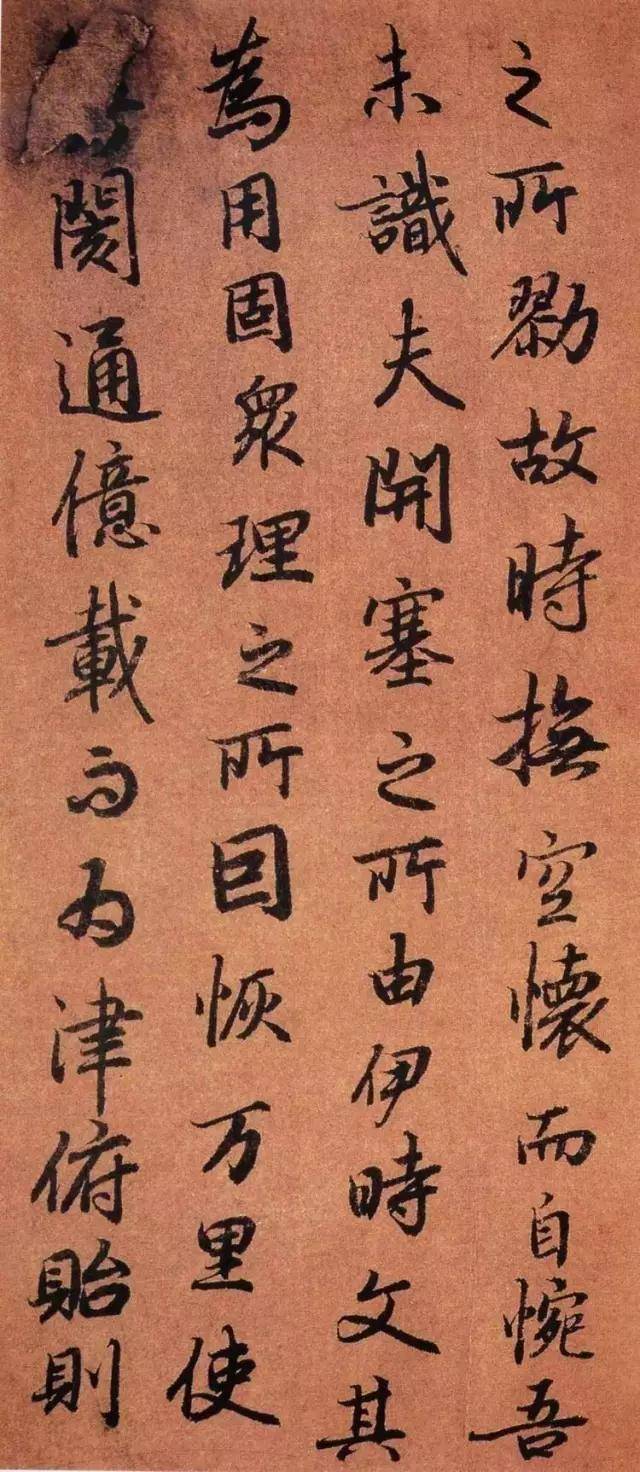 之所勠故時撫空懷而自惋吾
未識夫開塞之所由伊時文其
爲用固衆理之所因恢万里使
閡通億載而为津俯貽則